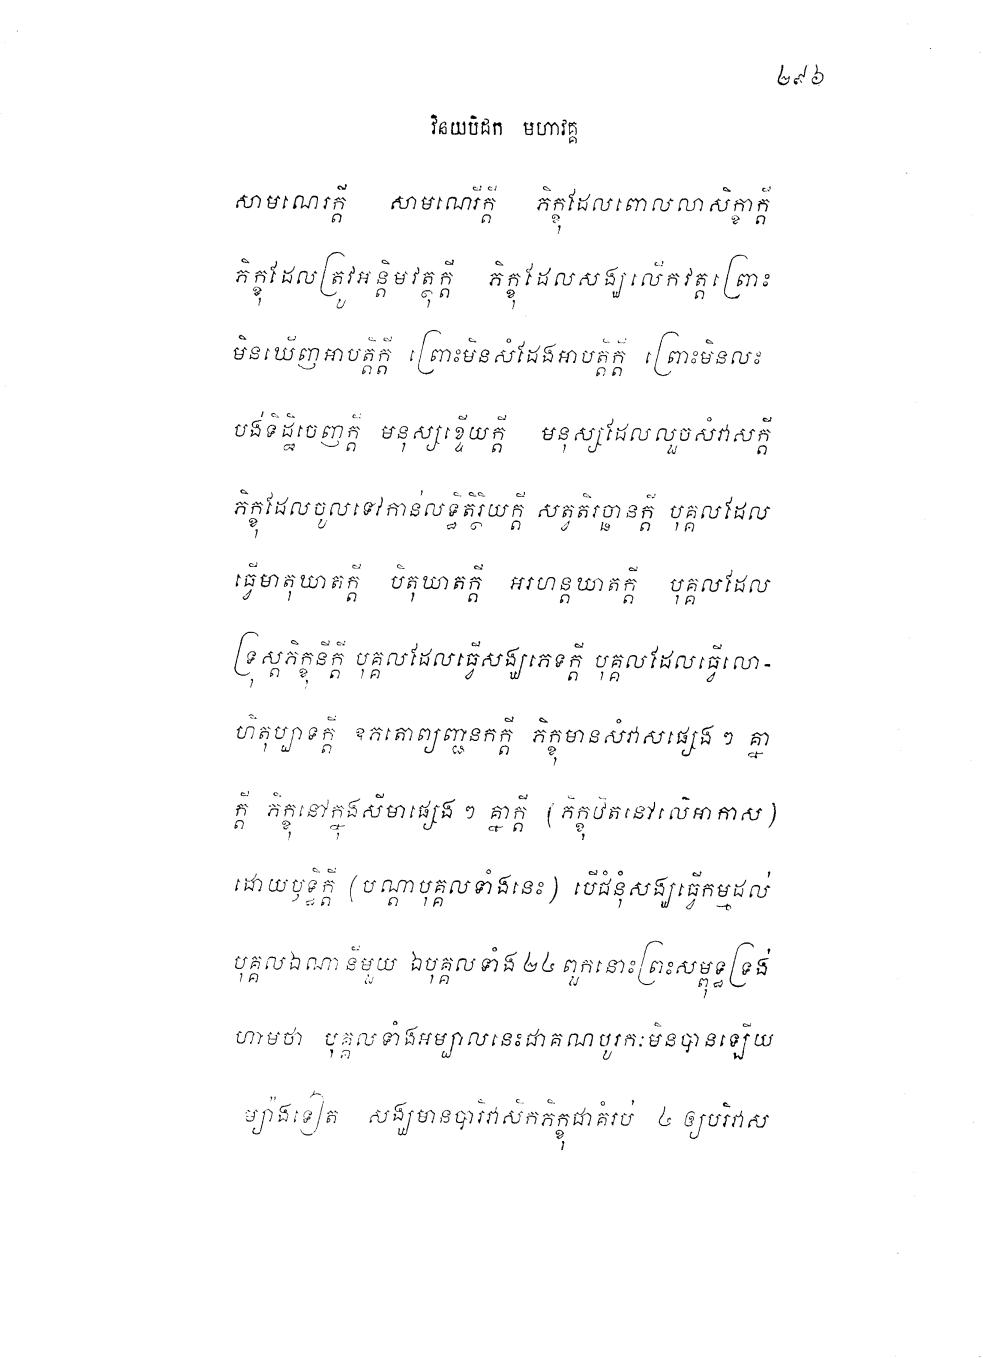 ២៩៦
វិនយបិដក មហាវគ្គ
សាមណេរក្ដី សាមណេរីក្ដី ភិក្ខុដែលពោលលាសិក្ខាក្ដី
ភិក្ខុដែលត្រូវអន្តិមវត្ថុក្ដី ភិក្ខុដែលសង្ឃលើកវត្តព្រោះ
មិនឃើញអាបត្តិក្ដី ព្រោះមិនសំដែងអាបត្តិក្ដី ព្រោះមិនលះ
បង់ទិដ្ឋិចេញក្ដី មនុស្សខ្ទើយក្ដី មនុស្សដែលលួចសំវាសក្ដី
ភិក្ខុដែលចូលទៅកាន់លទ្ធិតិរ្ថិយក្ដី សត្វតិរច្ឆានក្ដី បុគ្គលដែល
ធ្វើមាតុឃាតក្ដី បិតុឃាតក្ដី អរហន្តឃាតក្ដី បុគ្គលដែល
ទ្រុស្តភិក្ខុនីក្ដី បុគ្គលដែលធ្វើសង្ឃភេទក្ដី បុគ្គលដែលធ្វើលោ-
ហិតុប្បាទក្ដី ឧភតោព្យញ្ជនកក្ដី ភិក្ខុមានសំវាសផ្សេង ៗ គ្នា
ក្ដី ភិក្ខុនៅក្នុងសីមាផ្សេង ៗ គ្នាក្ដី (ភិក្ខុឋិតនៅលើអាកាស)
ដោយឫទ្ធិក្ដី (បណ្ដាបុគ្គលទាំងនេះ) បើជំនុំសង្ឃធ្វើកម្មដល់
បុគ្គលឯណានីមួយ ឯបុគ្គលទាំង ២៤ ពួកនោះព្រះសម្ពុទ្ធទ្រង់
ហាមថា បុគ្គលទាំងអម្បាលនេះជាគណបូរកៈមិនបានឡើយ
ម្យ៉ាងទៀត សង្ឃមានបារិវាសិកភិក្ខុជាគំរប់ ៤ ឲ្យបរិវាស